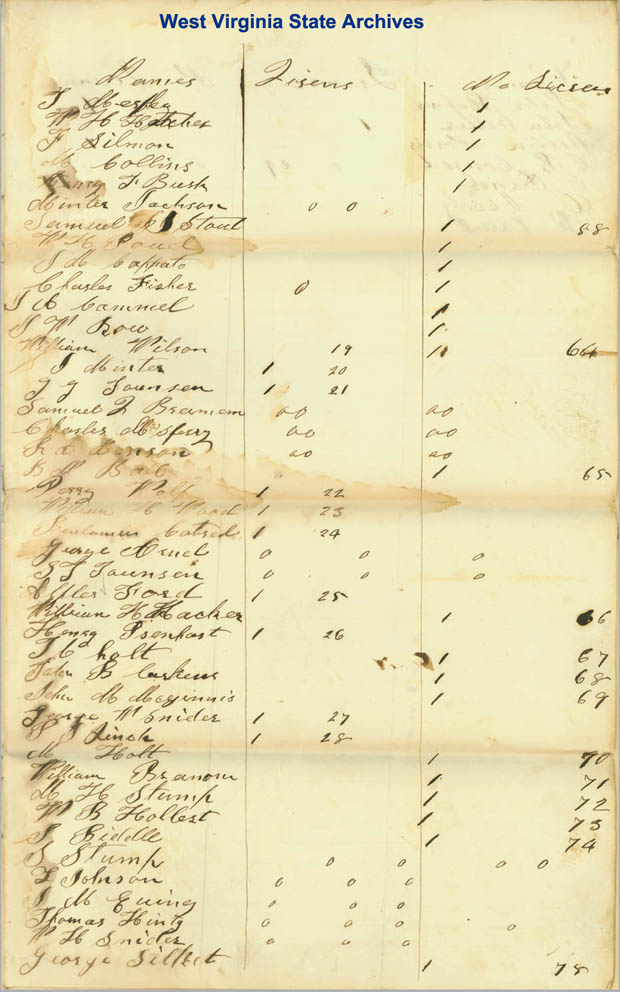 West Virginia State Archives
Names Lisens No Licsen
W H Hatcher 1
F Silmon 1
M Collins 1
Henry F Bush 1
Minter Jackson 0 0
Samuel Stout 1 58
W H 1
J M Cappato 1
Charles Fisher 0 1
J A Cammuel 1
J W Bow 1
William Wilson 19 11 64
S J Minter 1 20
J G Tounsen 1 21
Samuel Z Bramem 00 00
Charles Mc Sferry 00 00
00 00
B W 1 65
Perry Wolf 1 22
William H Wood 1 23
Benjamin 1 24
George Arnel 0 0 0
S T Tounsen 0 0 0
Ford 1 25
William H Hacker 1 66
Henry Isenhart 1 26
J C holt 1 67
B 1 68
John M Mcginnis 1 69
George W Snider 1 27
S J Linch 1 28
M Holt 1 70
William Branom 1 71
M H Stump 1 72
W B Hollest 1 73
J Biddle 1 74
S Stump 0 0 0 0
L Johnson 0 0 0
J M Ewing 0 0 0
Thomas Hinty 0 0 0 0
W H Snider 0 0 0
George Silket 1 78